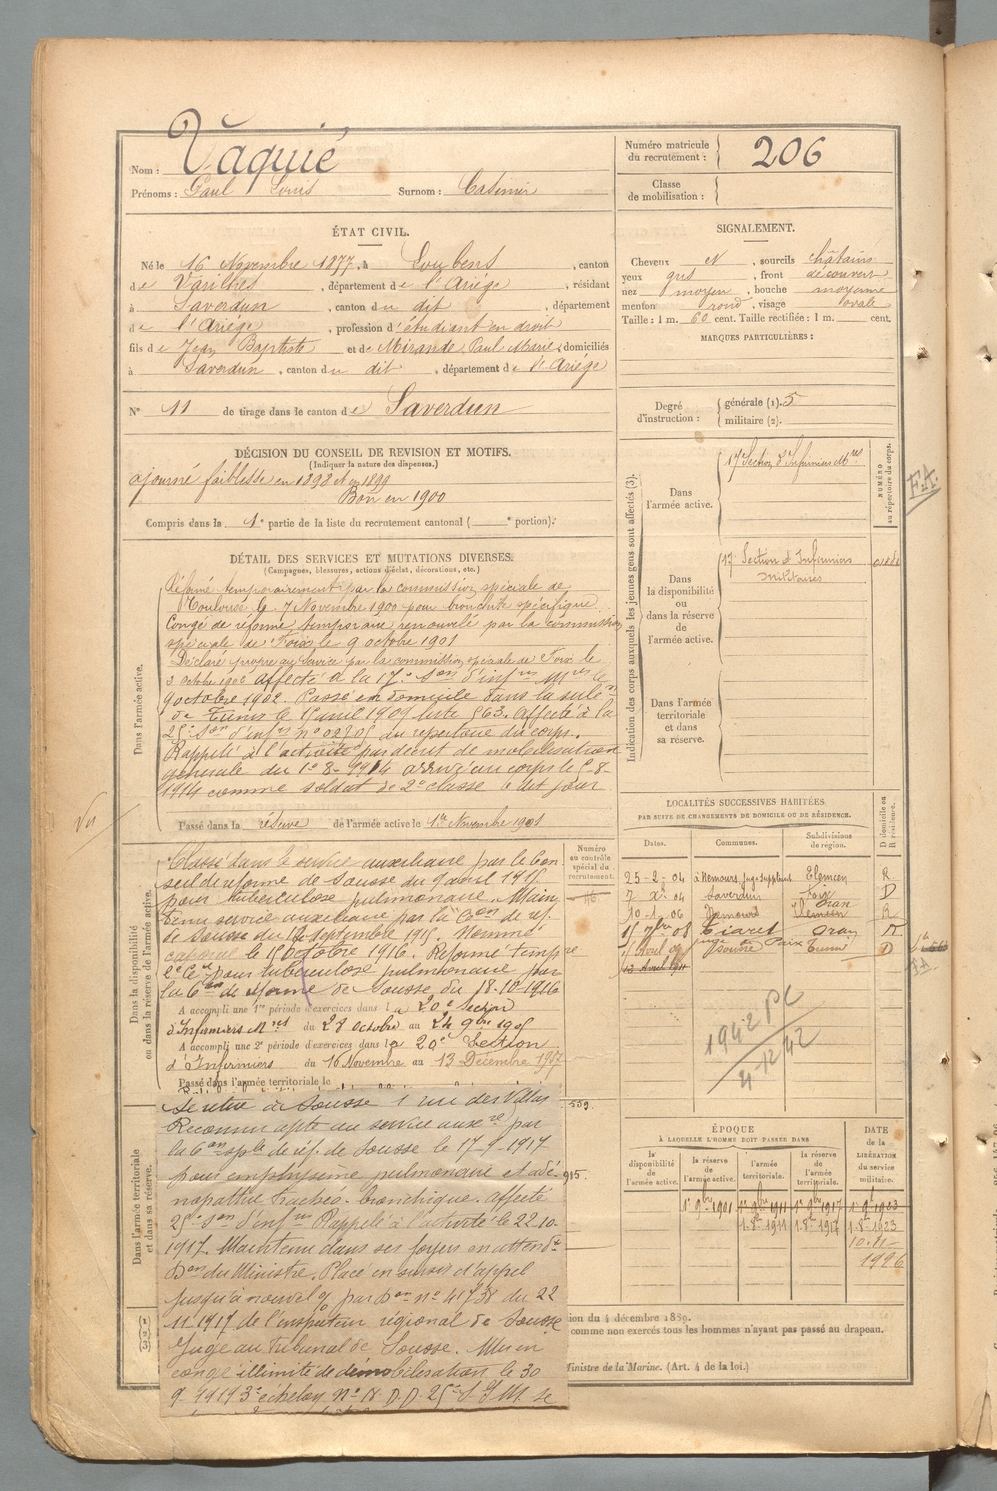 Nom : Vaquié
Prénoms : Paul Louis Surnom : Casimir
Numéro matricule du recrutement : 206
Classe de mobilisation :
ÉTAT CIVIL.
Né le 16 Novembre 1877, à Loubens, canton
de Varilhes, département de l'Ariège, résidant
à Saverdun, canton du dit, département
de l'Ariège, profession d'étudiant en droit
fils de Jean Baptiste et de Mirande, Paul Marie, domiciliés
à Saverdun, canton du dit, département de l'Ariège
N° 11 de tirage dans le canton de Saverdun
SIGNALEMENT.
Cheveux N, sourcils châtains
yeux gris, front découvert
nez moyen, bouche moyenne
menton rond, visage ovale
Taille : 1 m. 60 cent. Taille rectifiée : 1 m. cent.
MARQUES PARTICULIÈRES :
Degré d'instruction : générale (1). 5
militaire (2).
DÉCISION DU CONSEIL DE REVISION ET MOTIFS.
(Indiquer la nature des dispenses.)
ajourné faiblesse en 1898 et en 1899
Bon en 1900
Compris dans la 1e partie de la liste du recrutement cantonal ( e portion).
DÉTAIL DES SERVICES ET MUTATIONS DIVERSES.
(Campagnes, blessures, actions d'éclat, décorations, etc.)
Dans l'armée active.
Réformé temporairement par la commission spéciale de
Toulouse le 7 Novembre 1900 pour bronchite spécifique
Congé de réforme temporaire renouvelé par la commission
spéciale de Foix le 9 octobre 1901
Déclaré propre au service par la commission spéciale de Foix le
octobre 1902 affecté à la 17e Son d'infres Mres le
9 octobre 1902. Passé en domicile dans la
de Tunis le 1 avril 1909 liste 563. Affecté à la
25e Son d'infres n° du répertoire du corps.
Rappelé à l'activité par décret de mobilisation
générale du 1er 8-1914 arrivé au corps le 5-8-
1914 comme soldat de 2e classe le dit jour
Passé dans la réserve de l'armée active le 1er Novembre 1901
Vu
Dans la disponibilité ou dans la réserve de l'armée active.
Classé dans le service auxiliaire par le Con
seil de réforme de Sousse du 9 avril 1915
pour tuberculose pulmonaire. Main
tenu service auxiliaire par la Con de réf.
de Sousse du septembre 1915. Nommé
caporal le octobre 1916. Réformé tempre
pour tuberculose pulmonaire par
la Con de réforme de Sousse du 18.10.1916
A accompli une 1re période d'exercices dans la 20e Section
d'Infirmiers Mres du 28 Octobre au 24 9bre 1905
A accompli une 2e période d'exercices dans la 20e Section
d'Infirmiers du 16 Novembre au 13 Décembre 1907
Passé dans l'armée territoriale le
Numéro au contrôle spécial du recrutement.
Dans l'armée territoriale et dans sa réserve.
Se retire à Sousse 1 rue des
Reconnu apte au service auxre par
la Con sple de réf. de Sousse le 17-9-1917
pour emphysème pulmonaire et adé-
nopathie trachéo-bronchique. Affecté
25e Son d'infres Rappelé à l'activité le 22-10-
1917. Maintenu dans ses foyers en attendt
Don du Ministre. Placé en sursis d'appel
jusqu'à nouvel o. par Don n° 41738 du 22
11-1917 de l'inspecteur régional de Sousse
Juge au tribunal de Sousse. Mis en
congé illimité de démobilisation le 30
1919 3e échelon n° D.D. 25e S I M. se
915.
Indication des corps auxquels les jeunes gens sont affectés (3).
NUMÉRO au répertoire du corps.
Dans l'armée active.
17e Section d'Infirmiers Mres
Dans la disponibilité ou dans la réserve de l'armée active.
17e Section d'Infirmiers
militaires
Dans l'armée territoriale et dans sa réserve.
F.A.
LOCALITÉS SUCCESSIVES HABITÉES
PAR SUITE DE CHANGEMENTS DE DOMICILE OU DE RÉSIDENCE.
Dates. Communes. Subdivisions de région. D domicile ou R résidence.
25-2-04 à Nemours, Juge suppléant Tlemcen R
7 Xbre 04 Saverdun Foix D
10-1-06 Nemours Oran Tlemcen R
15 9bre 08 Tiaret Oran R
avril 09 Sousse Tunis D
1942 PC
4-12-42
ÉPOQUE
À LAQUELLE L'HOMME DOIT PASSER DANS
la disponibilité de l'armée active. la réserve de l'armée active. l'armée territoriale. la réserve de l'armée territoriale. DATE de la LIBÉRATION du service militaire.
1er 9bre 1901 1er 9bre 1911 1er 9bre 1917
1.8bre 1911 1.8bre 1917 1.8bre 1923
ion du 4 décembre 1889.
comme non exercés tous les hommes n'ayant pas passé au drapeau.
Ministre de la Marine. (Art. 4 de la loi.)